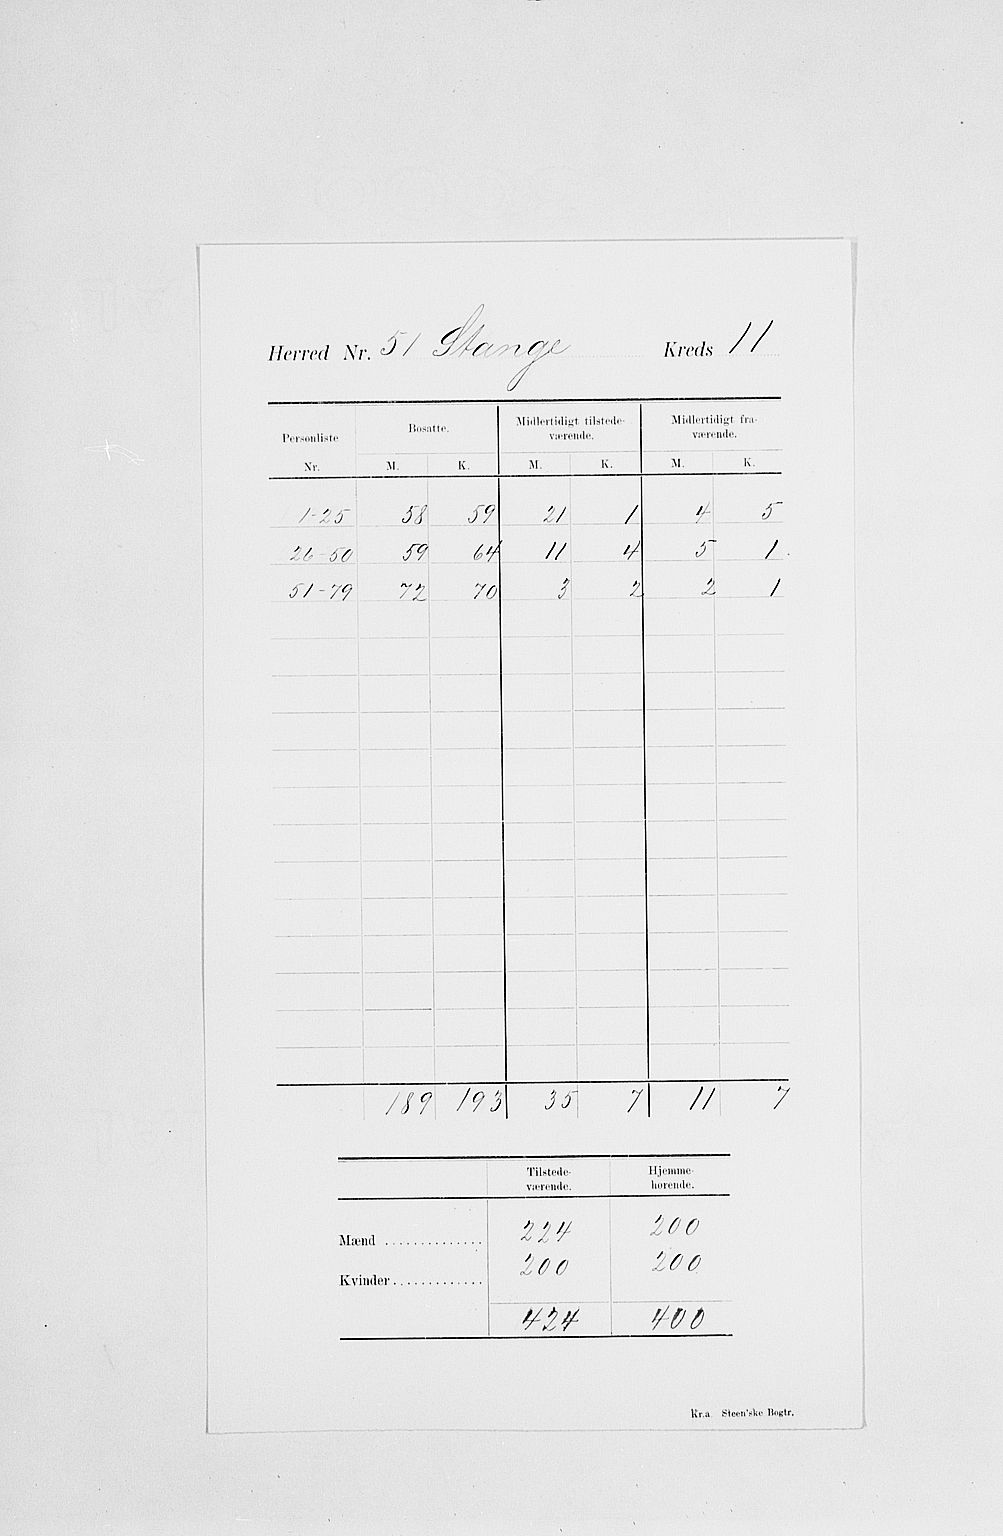 Herred Nr. 51 Stange Kreds 11
Personliste Nr. Bosatte. Midlertidigt tilstedeværende. Midlertidigt fraværende.
M. K. M. K. M. K.
1-25 58 59 21 1 4 5
26-50 59 64 11 4 5 1
51-79 72 70 3 2 2 1
189 193 35 7 11 7
Tilstede- Hjemme-
værende. hørende.
Mænd .............. 224 200
Kvinder ............. 200 200
424 400
Kr.a Steen'ske Bogtr.